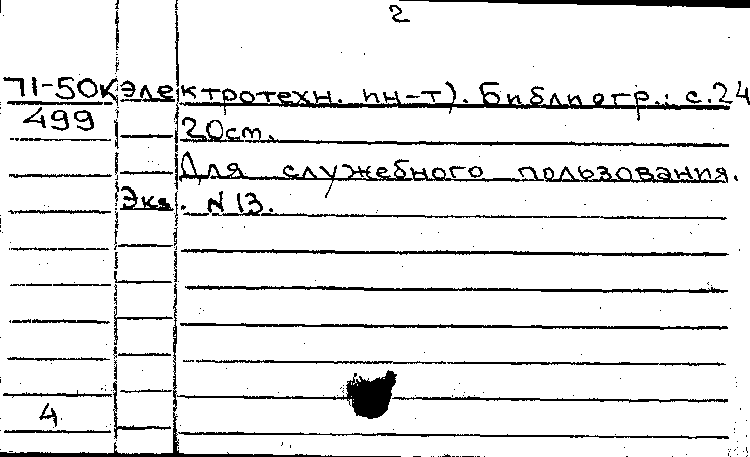 2
71-50К электротехн. ин-т). Библиогр.: с.24
499 20 ст.
Для служебного пользования.
Экз. N 13.
4